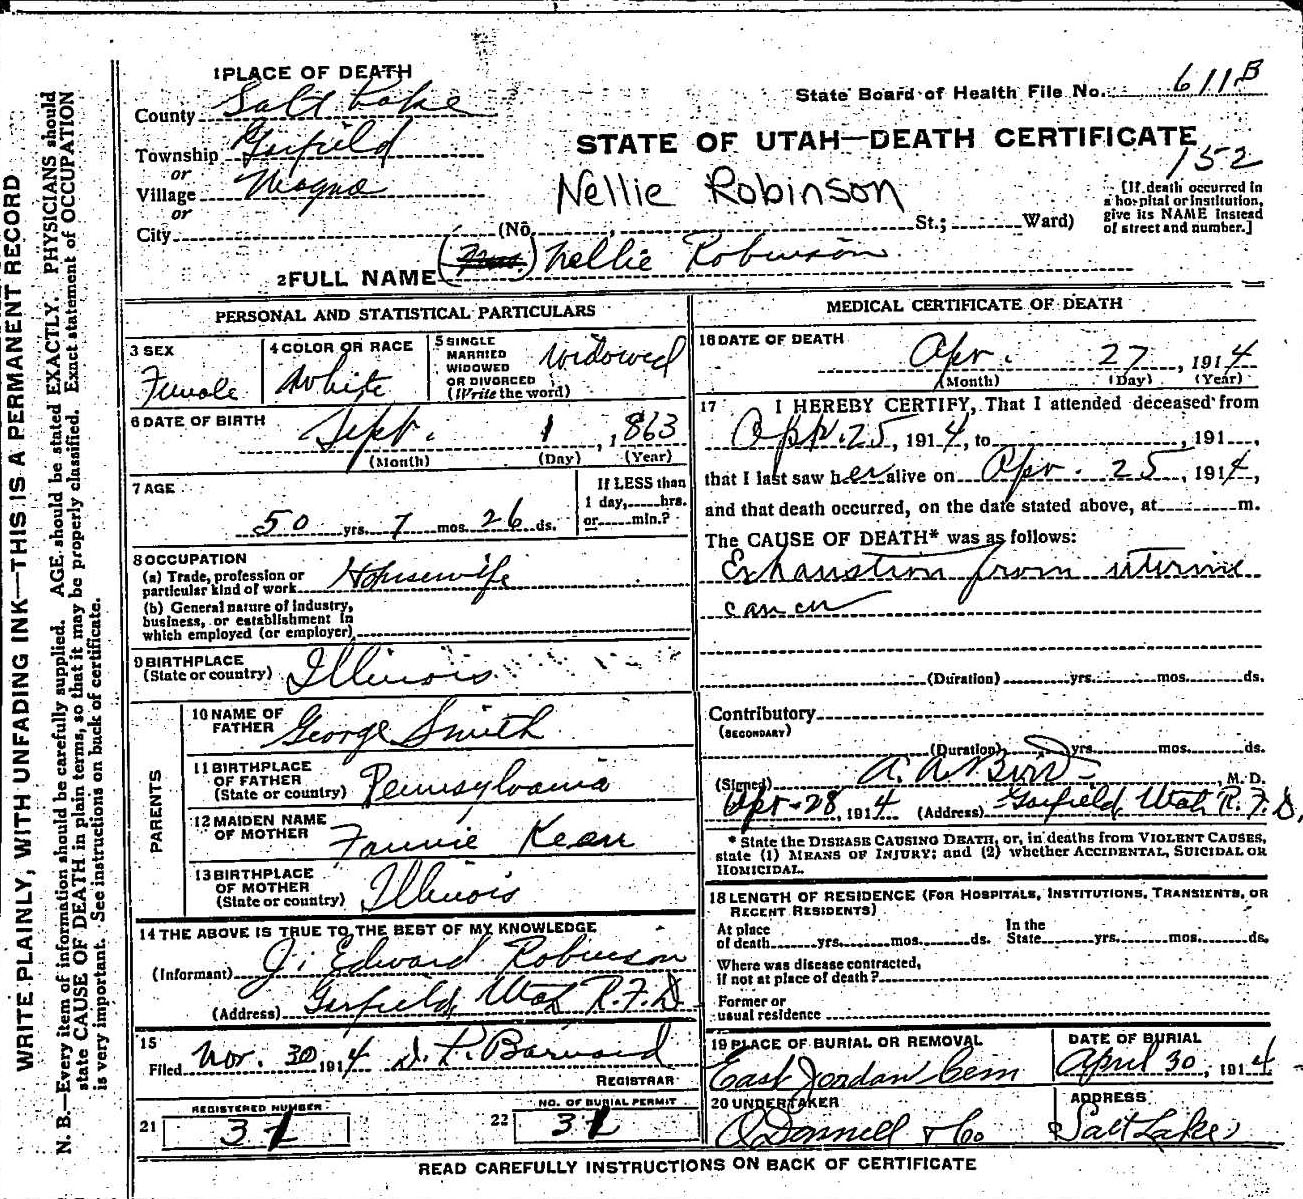 WRITE PLAINLY, WITH UNFADING INK—THIS IS A PERMANENT RECORD
N. B.—Every item of information should be carefully supplied. AGE should be stated EXACTLY. PHYSICIANS should
state CAUSE OF DEATH in plain terms, so that it may be properly classified. Exact statement of OCCUPATION
is very important. See instructions on back of certificate.
1 PLACE OF DEATH
County Salt Lake
Township Garfield
or
Village Magna
or
City
State Board of Health File No. 611B
STATE OF UTAH—DEATH CERTIFICATE
152
Nellie Robinson
[If death occurred in
a hospital or institution,
give its NAME instead
of street and number.]
(No. , St.; Ward)
2 FULL NAME (Mrs) Nellie Robinson
PERSONAL AND STATISTICAL PARTICULARS
3 SEX
Female
4 COLOR OR RACE
White
5 SINGLE
MARRIED
WIDOWED
OR DIVORCED
(Write the word)
Widowed
6 DATE OF BIRTH
Sept. 1, 1863
(Month) (Day) (Year)
7 AGE
50 yrs. 7 mos. 26 ds.
If LESS than
1 day, hrs.
or min.?
8 OCCUPATION
(a) Trade, profession or
particular kind of work Housewife
(b) General nature of industry,
business, or establishment in
which employed (or employer)
9 BIRTHPLACE
(State or country) Illinois
PARENTS
10 NAME OF
FATHER George Smith
11 BIRTHPLACE
OF FATHER
(State or country) Pennsylvania
12 MAIDEN NAME
OF MOTHER Fannie Kean
13 BIRTHPLACE
OF MOTHER
(State or country) Illinois
14 THE ABOVE IS TRUE TO THE BEST OF MY KNOWLEDGE
(Informant) J. Edward Robinson
(Address) Garfield, Utah R.F.D.
15
Filed Nov. 30 1914 D. P. Barnard
REGISTRAR
21 REGISTERED NUMBER
22 NO. OF BURIAL PERMIT
MEDICAL CERTIFICATE OF DEATH
16 DATE OF DEATH
Apr. 27, 1914
(Month) (Day) (Year)
17 I HEREBY CERTIFY, That I attended deceased from
Apr. 25, 1914, to , 191 ,
that I last saw her alive on Apr. 25, 1914,
and that death occurred, on the date stated above, at m.
The CAUSE OF DEATH* was as follows:
Exhaustion from uterine
cancer
(Duration) yrs. mos. ds.
Contributory
(SECONDARY)
(Duration) yrs. mos. ds.
(Signed) A. A. Bird, M. D.
Apr-28, 1914 (Address) Garfield, Utah R.F.D.
* State the DISEASE CAUSING DEATH, or, in deaths from VIOLENT CAUSES,
state (1) MEANS OF INJURY; and (2) whether ACCIDENTAL, SUICIDAL OR
HOMICIDAL.
18 LENGTH OF RESIDENCE (FOR HOSPITALS, INSTITUTIONS, TRANSIENTS, OR
RECENT RESIDENTS)
At place
of death yrs. mos. ds.
In the
State yrs. mos. ds.
Where was disease contracted,
if not at place of death?
Former or
usual residence
19 PLACE OF BURIAL OR REMOVAL
East Jordan Cem
DATE OF BURIAL
April 30, 1914
20 UNDERTAKER
O'Donnell & Co
ADDRESS
Salt Lake
READ CAREFULLY INSTRUCTIONS ON BACK OF CERTIFICATE